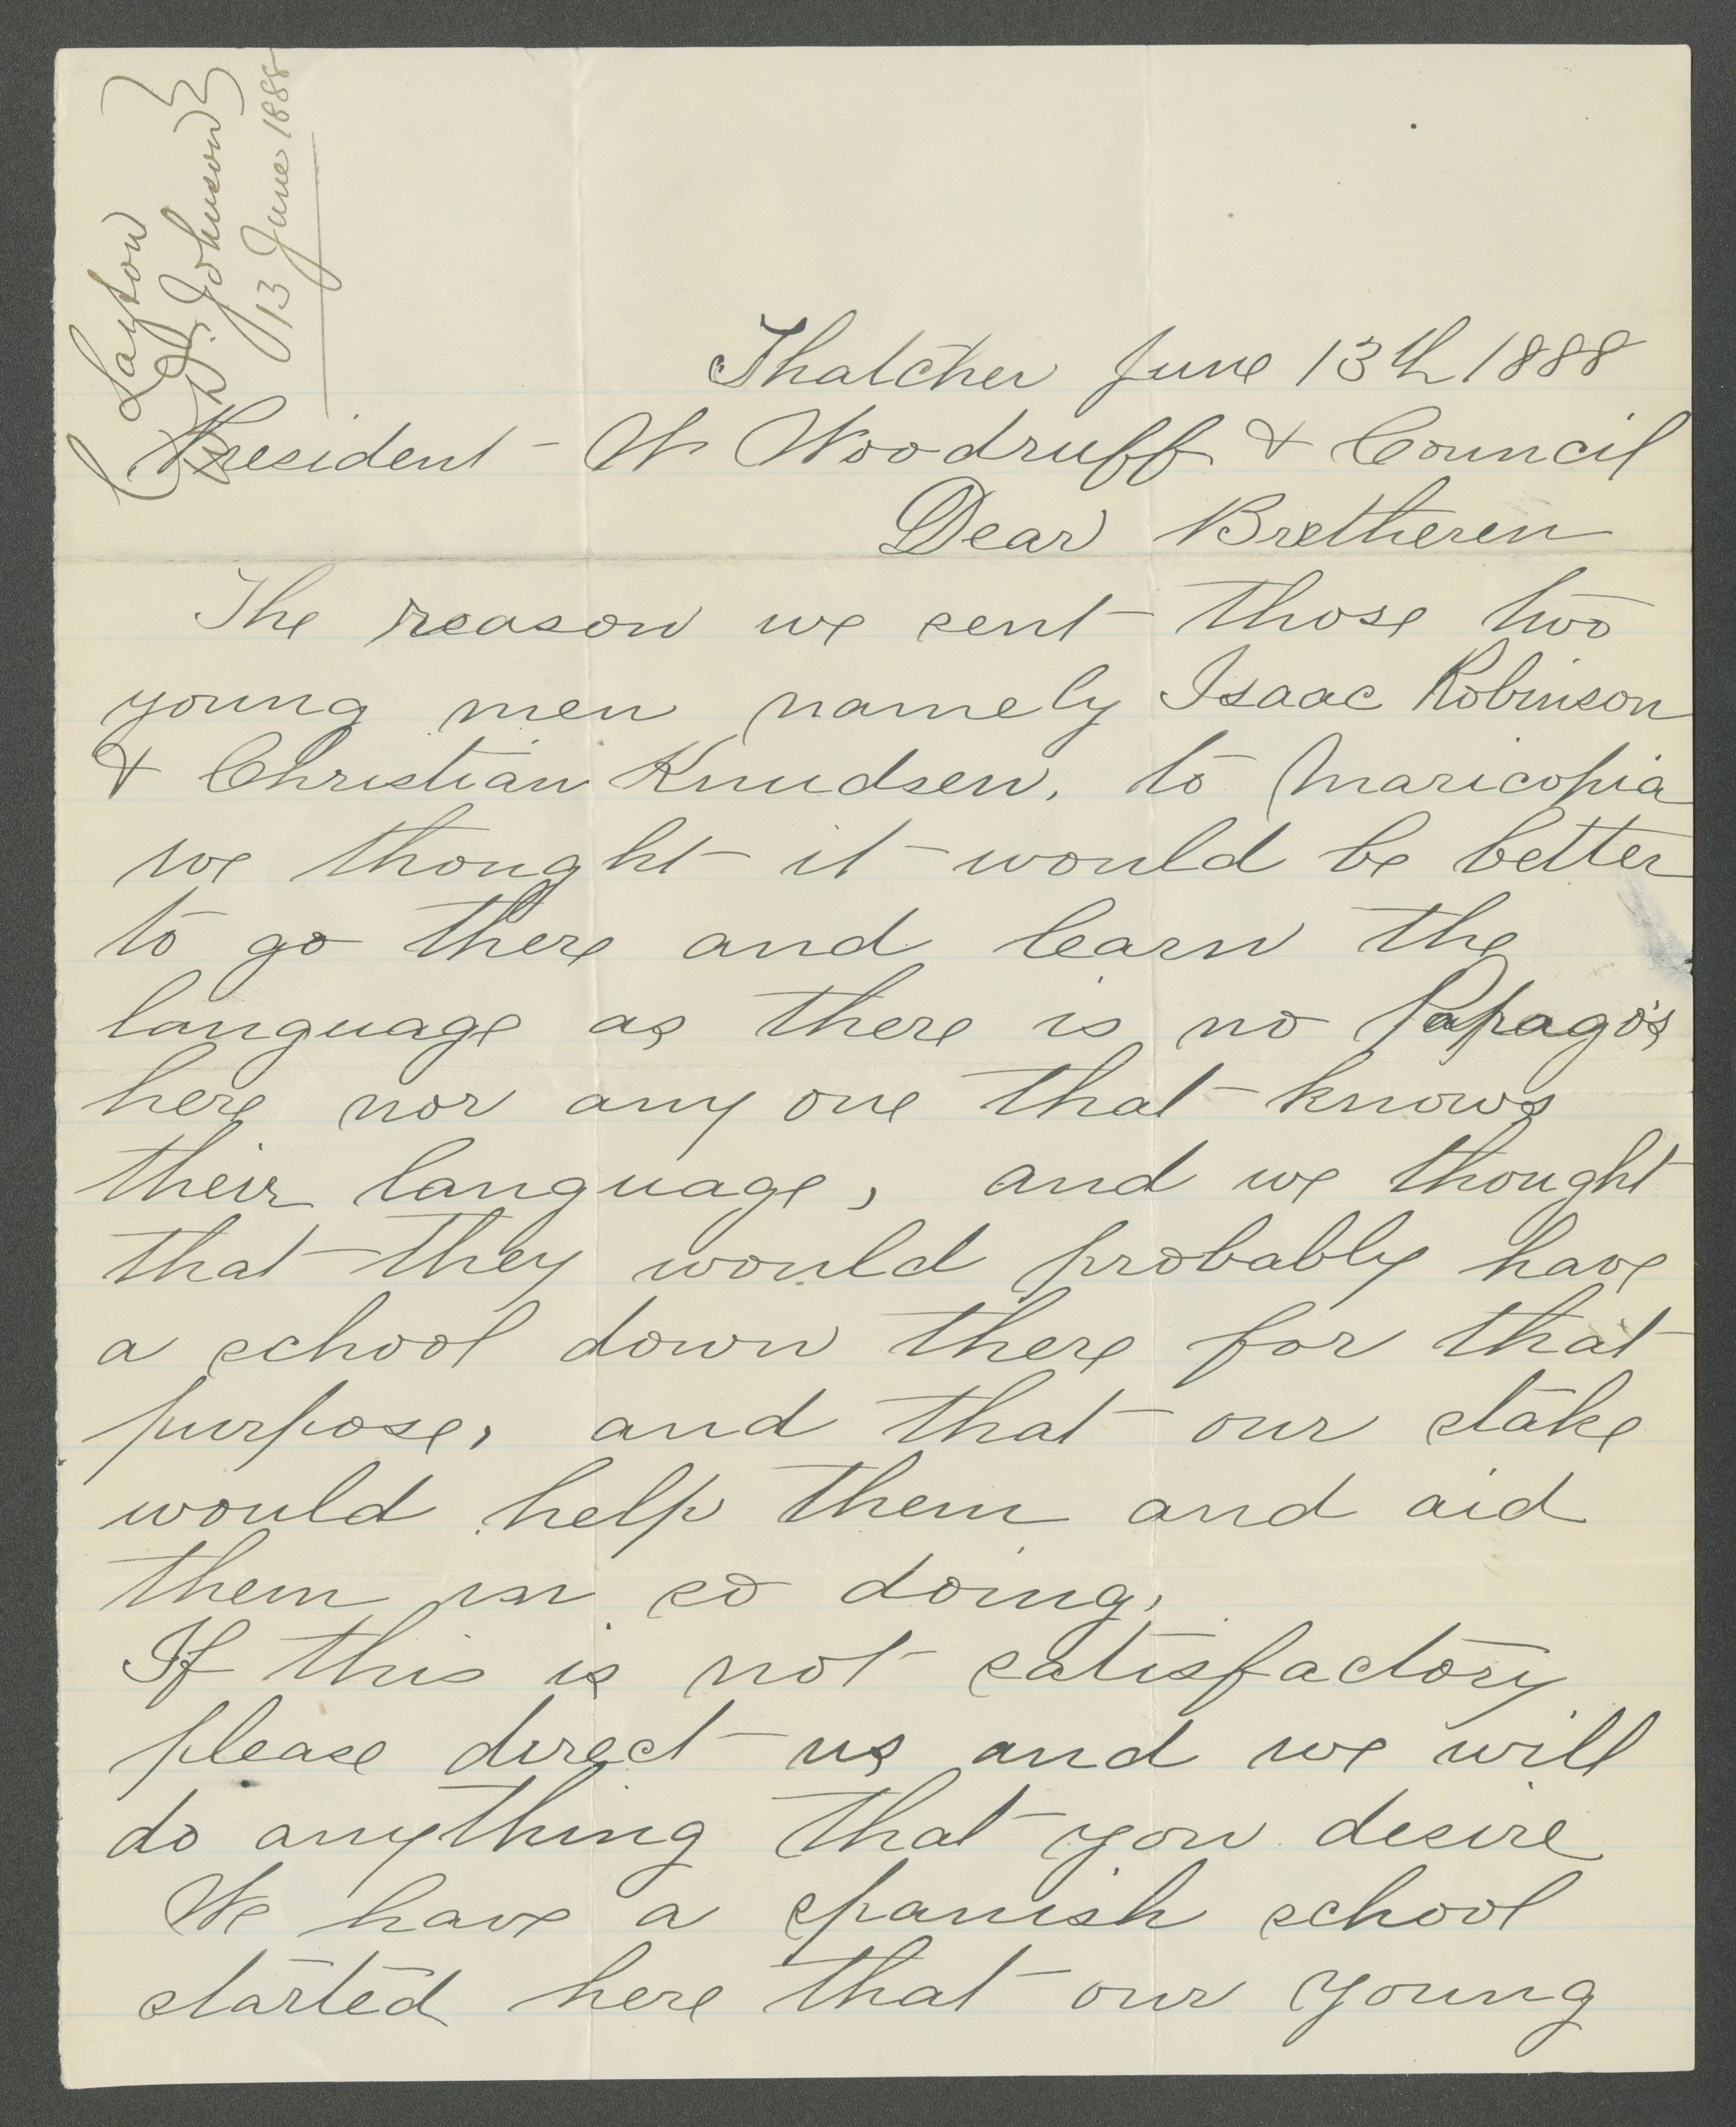 C Layton
W. D. Johnson
13 June 1888
Thatcher June 13th 1888
President W Woodruff & Council
Dear Bretheren
The reason we sent those two
young men namely Isaac Robinson
& Christian Knudsen, to Maricopia
we thought it would be better
to go there and learn the
language as there is no Papago's
here nor any one that knows
their language, and we thought
that they would probably have
a school down there for that
purpose, and that our stake
would help them and aid
them in so doing.
If this is not satisfactory
please direct us and we will
do anything that you desire
We have a spanish school
started here that our young